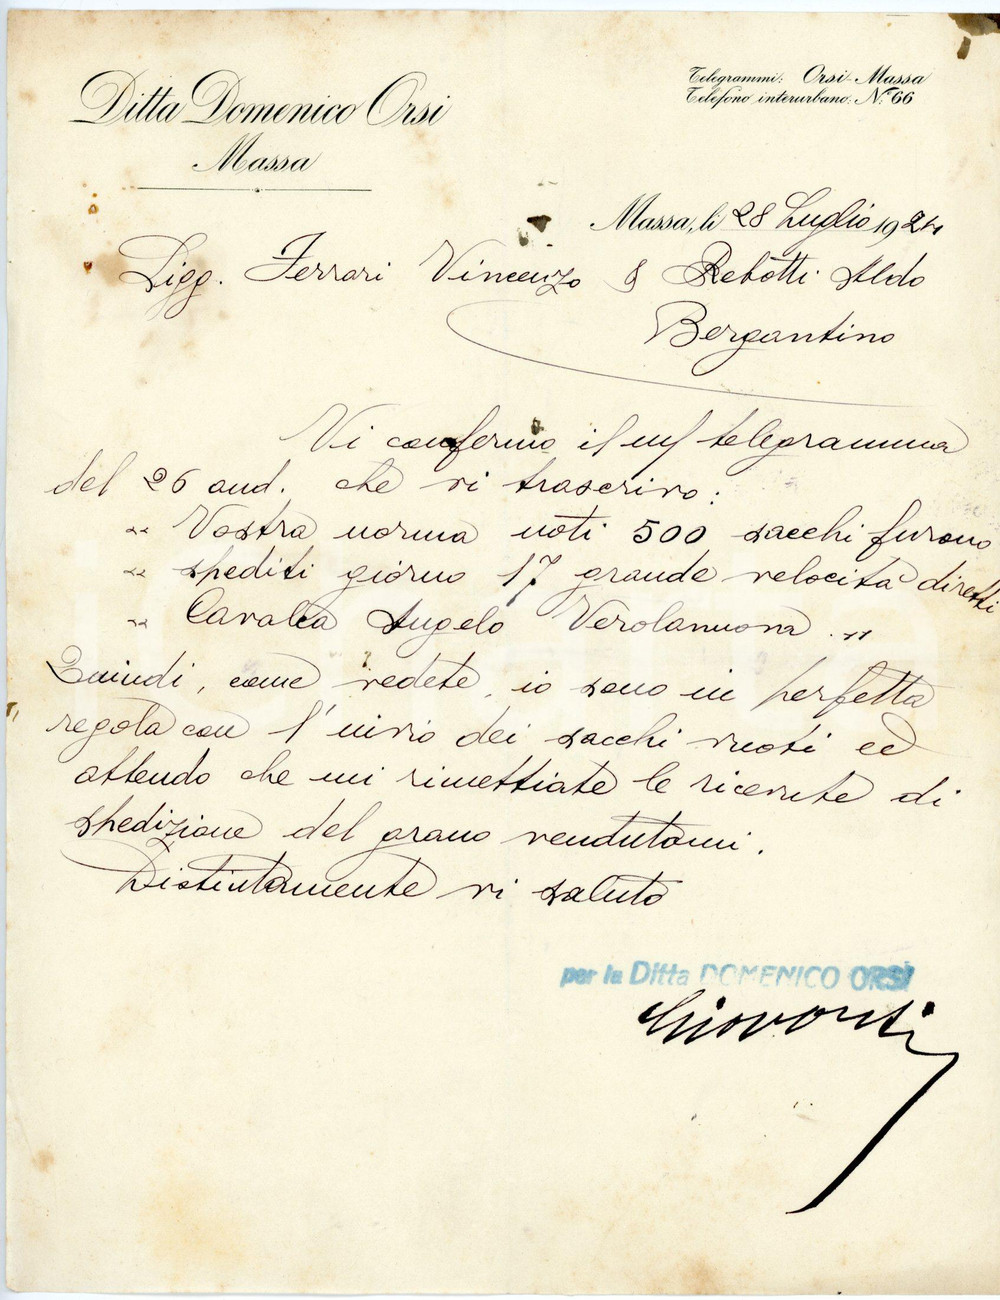 Ditta Domenico Orsi
Massa
Telegrammi: Orsi-Massa
Telefono interurbano: N.º 66
Massa, li 28 Luglio 1924
Sigg. Ferrari Vincenzo & Rebotti Aldo
Bergantino
Vi confermo il m/ telegramma
del 26 and. che vi trascrivo:
"" Vostra norma vuoti 500 sacchi furono
"" spediti giorno 17 grande velocità diretti
"" Cavalca Angelo Verolanuova. ""
Quindi, come vedete, io sono in perfetta
regola con l'invio dei sacchi vuoti ed
attendo che mi rimettiate le ricevute di
spedizione del grano vendutomi.
Distintamente vi saluto
per la Ditta DOMENICO ORSI